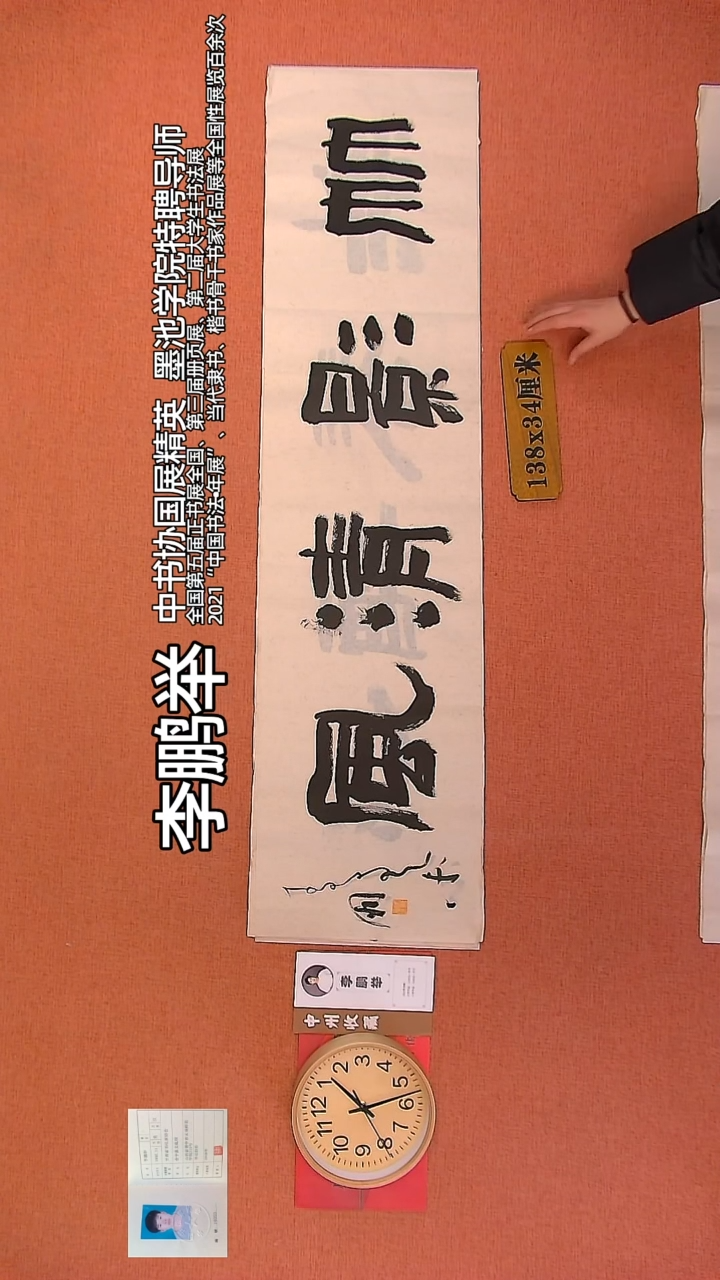 李鹏举
中书协国展精英 墨池学院特聘导师
全国第五届正书展全国、第三届册页展、第二届大学生书法展
2021“中国书法·年展”、当代隶书、楷书骨干书家作品展等全国性展览百余次
竹影清風
138x34厘米
李鹏举
中州收藏
12
1
2
3
4
5
6
7
8
9
10
11